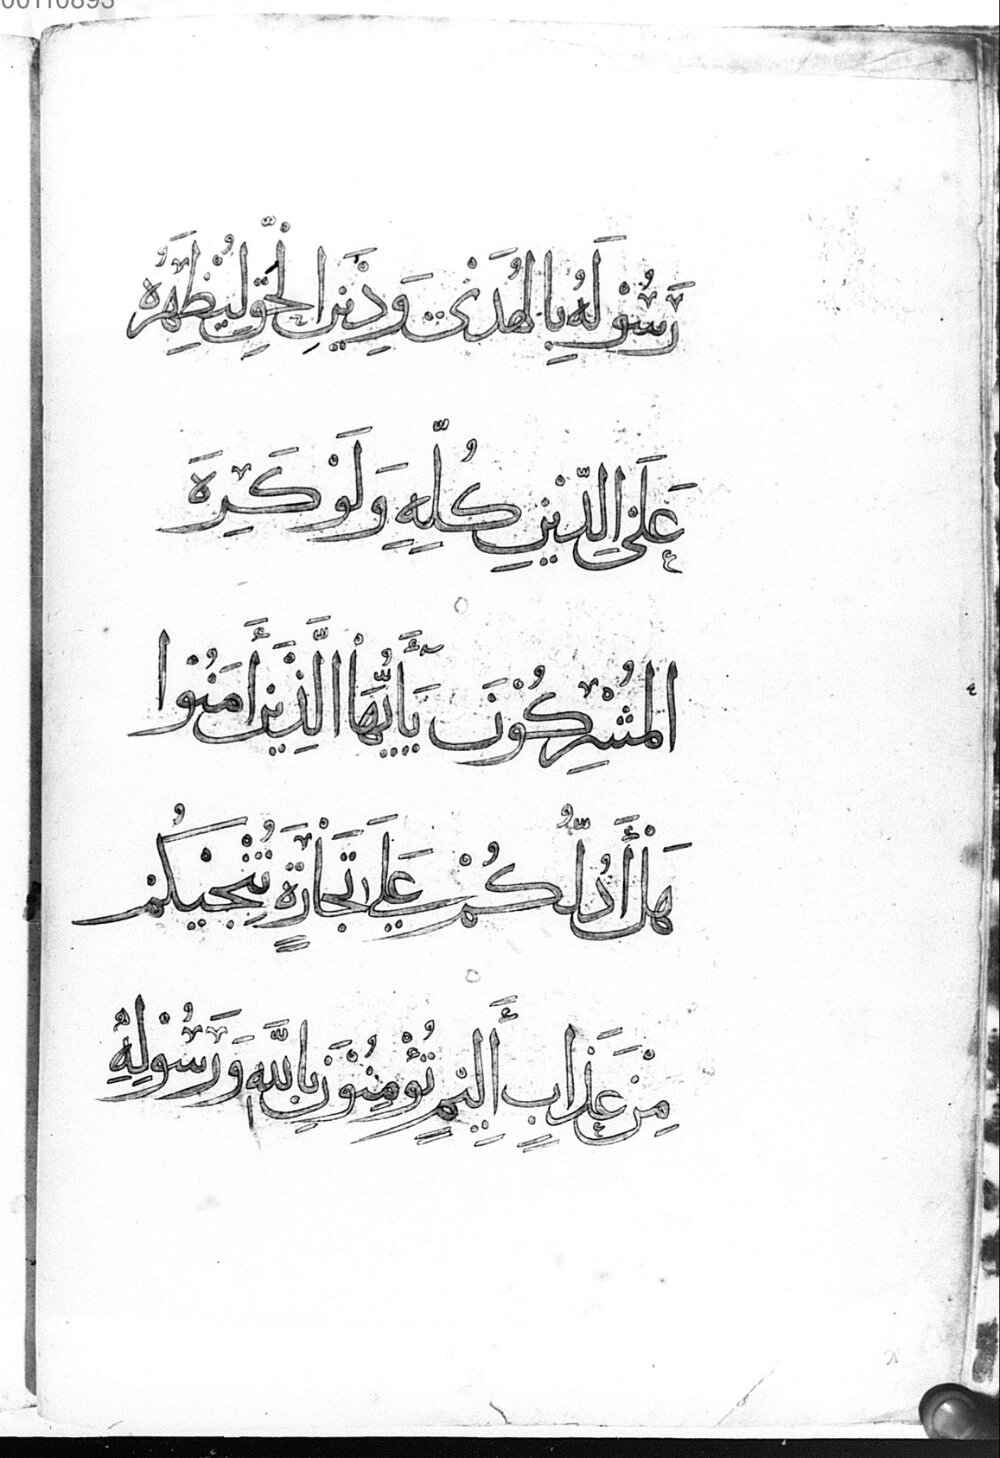 00110893
رَسُوْلَهُ بِالْهُدَىٰ وَدِيْنِ الْحَقِّ لِيُظْهِرَهُ
عَلَى الدِّيْنِ كُلِّهِ وَلَوْ كَرِهَ
الْمُشْرِكُوْنَ يَٓأَيُّهَا الَّذِيْنَ أَمَنُوْا
هَلْ أَدُلُّكُمْ عَلَى تِجَارَةٍ تُنْجِيْكُمْ
مِنْ عَذَابٍ أَلِيْمٍ تُؤْمِنُوْنَ بِاللَّهِ وَرَسُوْلِهِ